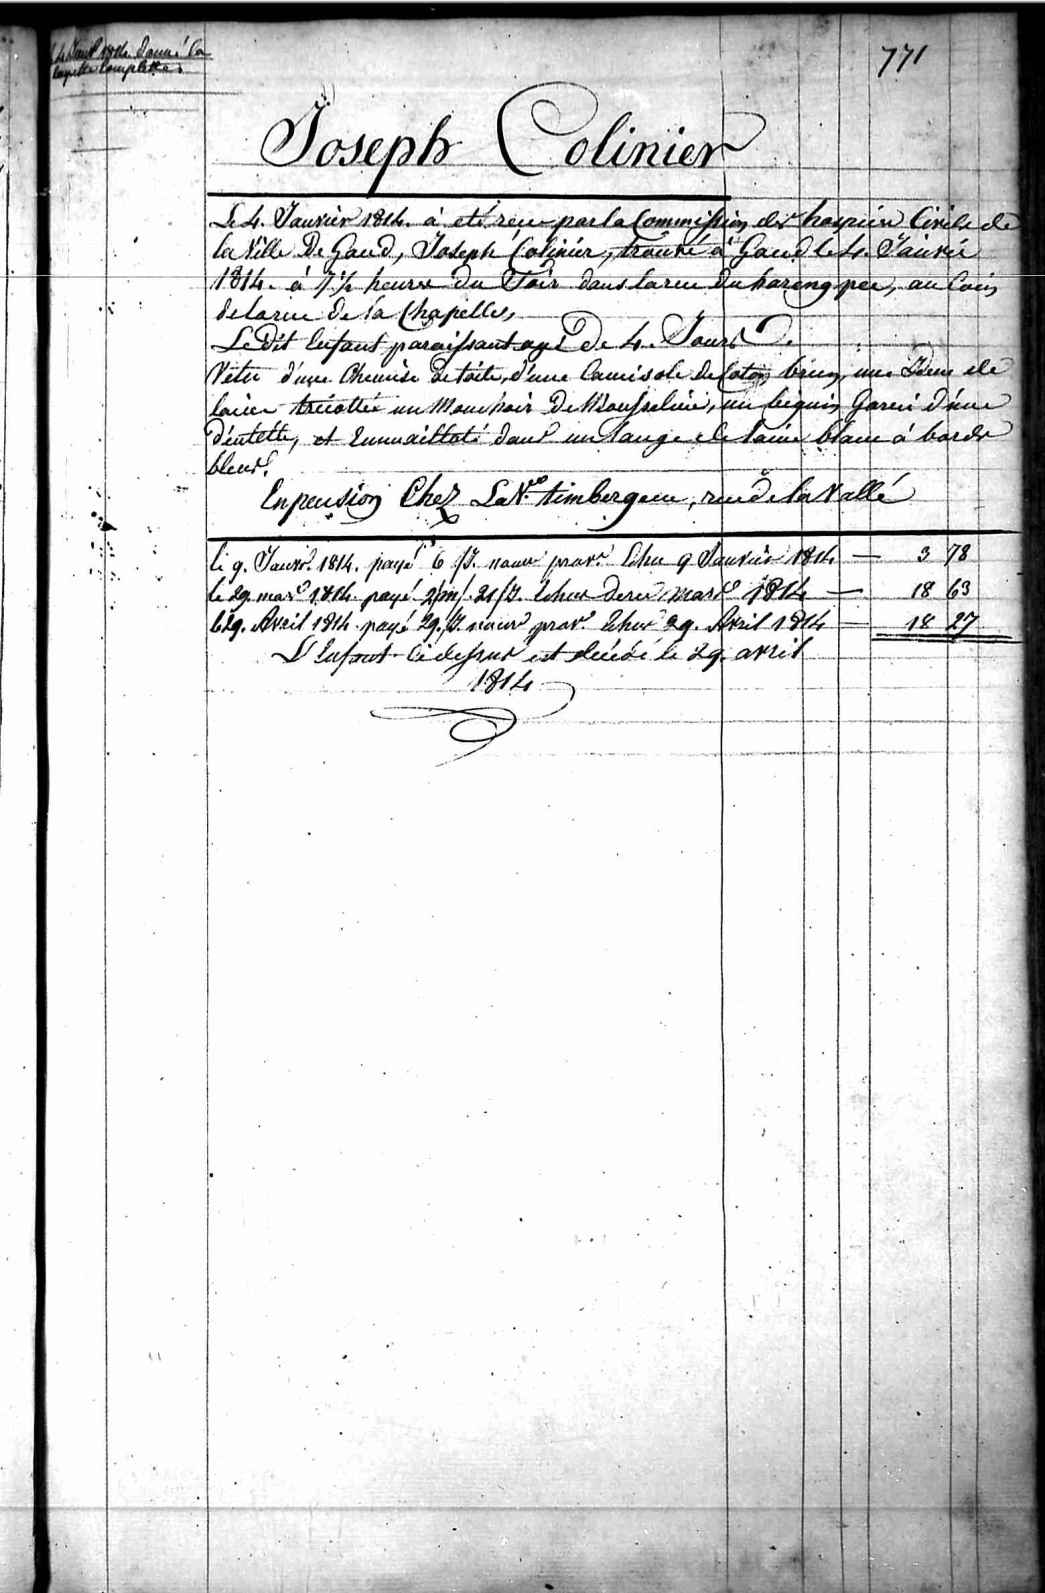 771
4 Janv.r 1814. Donné la
layette complette.
Joseph Colinier
Le 4. Janvier 1814. à eté reçu par la Commission des hospices Civils de
la Ville De Gand, Joseph Colinier, trouvé à Gand le 4. Janvier
1814. à 7 1/2 heures du Soir dans la rue du hareng pec, au Coin
de la rue De la Chapelle,
Le Dit Enfant paraissant agé De 4. Jours
Vetu d'une Chemise de toile, d'une Camisole de Coton brun, une Idem de
laine tricottée un Mouchoir De Mousseline, un beguin Garni d'une
dentelle, et Emmailloté dans un lange de laine blanc à bords
bleus.
En pension Chez La V.ve timbergeun, rue de la Vallé
le 9. Janv.r 1814. payé 6 /J. nour prov.r Echu 9 Janvier 1814 — 3 78
le 29. mars 1814. payé 2/m/. 21/J. Echus mars 1814 — 18 63
le 29. Avril 1814. payé 29./J. nour prov.r Echus 29. Avril 1814 — 18 27
L'Enfant ci dessus est décédé le 29. avril
1814